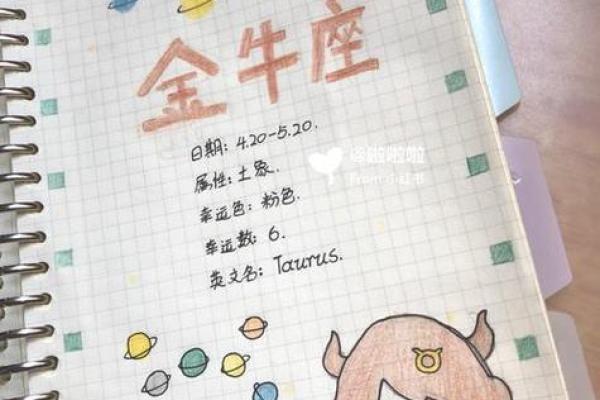 金牛座
日期: 4.20-5.20.
属性: 土象.
幸运色: 粉色.
幸运数: 6.
英文名: Taurus.
@啦啦啦
From 小红书